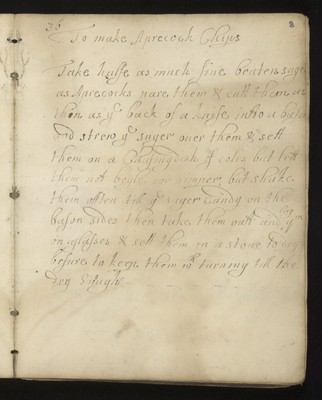 36
8
To make Aprecock Chips
Take halfe as much fine beaten suger
as Aprecocks pare them & cutt them as
then as yͤ back of a knife into a bason
and strew yͤ suger over them & sett
them on a Chafingdish of coles but lett
them not boyle nor simper but shake
them often till yͤ suger Candy on the
bason sides then take them out and lay yᵐ
on glasses & sett them in a stove to dry
besure to keep them wᵗ turning till the
dry Enugh